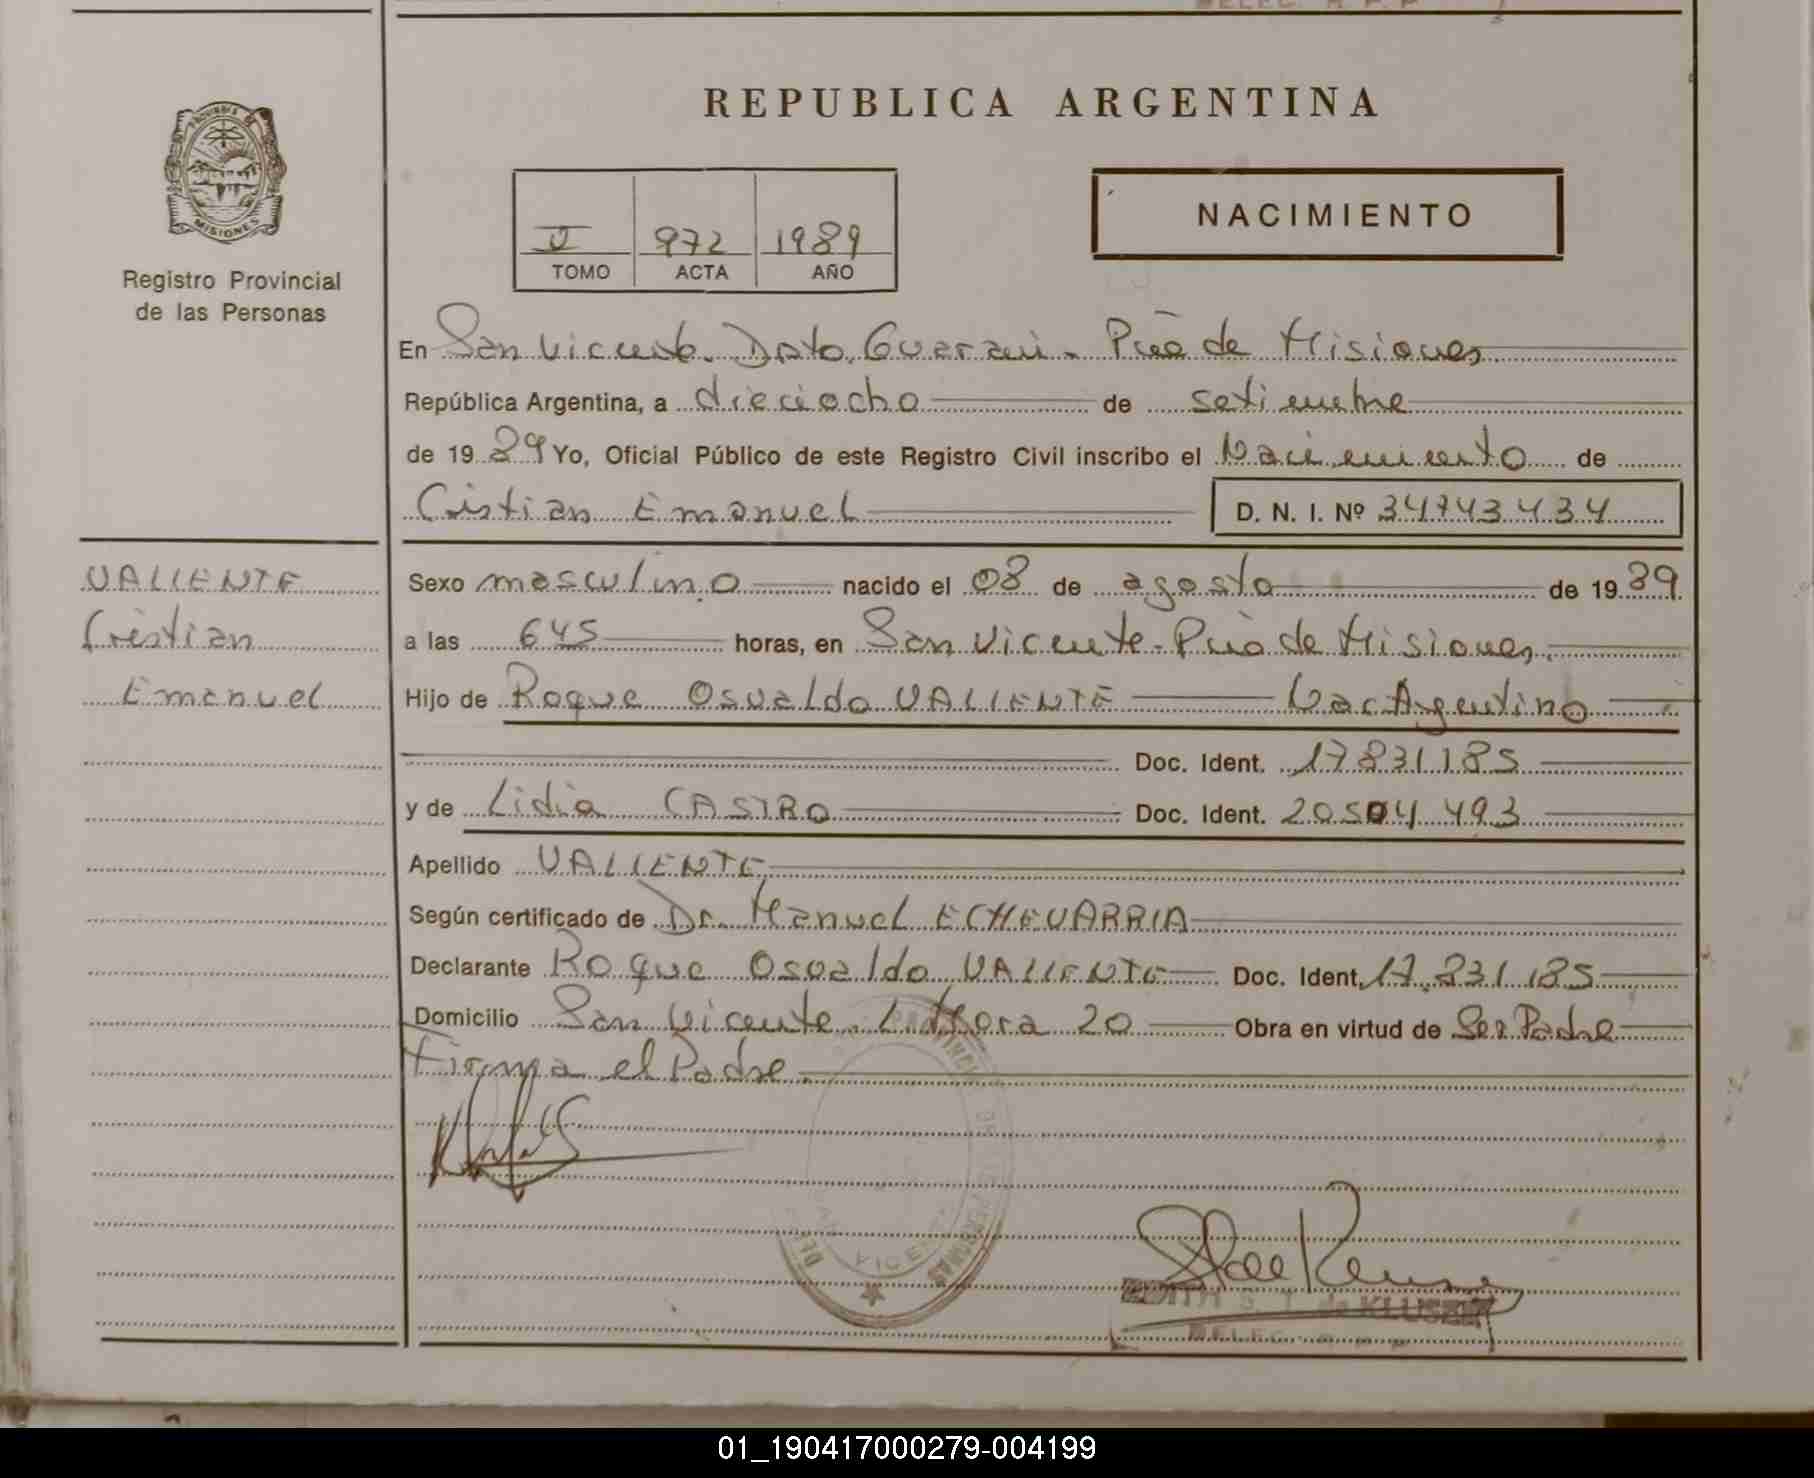 REPUBLICA ARGENTINA
PROVINCIA
MISIONES
Registro Provincial
de las Personas
V 972 1989
TOMO ACTA AÑO
NACIMIENTO
En San Vicente. Dpto. Guarani. Pcia de Misiones
República Argentina, a dieciocho de setiembre
de 19 89 Yo, Oficial Público de este Registro Civil inscribo el Nacimiento de
Cristian Emanuel D. N. I. Nº 34743434
VALIENTE
Cristian
Emanuel
Sexo masculino nacido el 08 de agosto de 19 89
a las 645 horas, en San Vicente - Pcia de Misiones.
Hijo de Roque Osvaldo VALIENTE Nac Argentino
Doc. Ident. 17831185
y de Lidia CASTRO Doc. Ident. 20504493
Apellido VALIENTE
Según certificado de Dr. Manuel ECHEVARRIA
Declarante Roque Osvaldo VALIENTE Doc. Ident. 17.831.185
Domicilio San Vicente. 20 Obra en virtud de Ser Padre
Firma el Padre.
DE KLUSZ
01_190417000279-004199